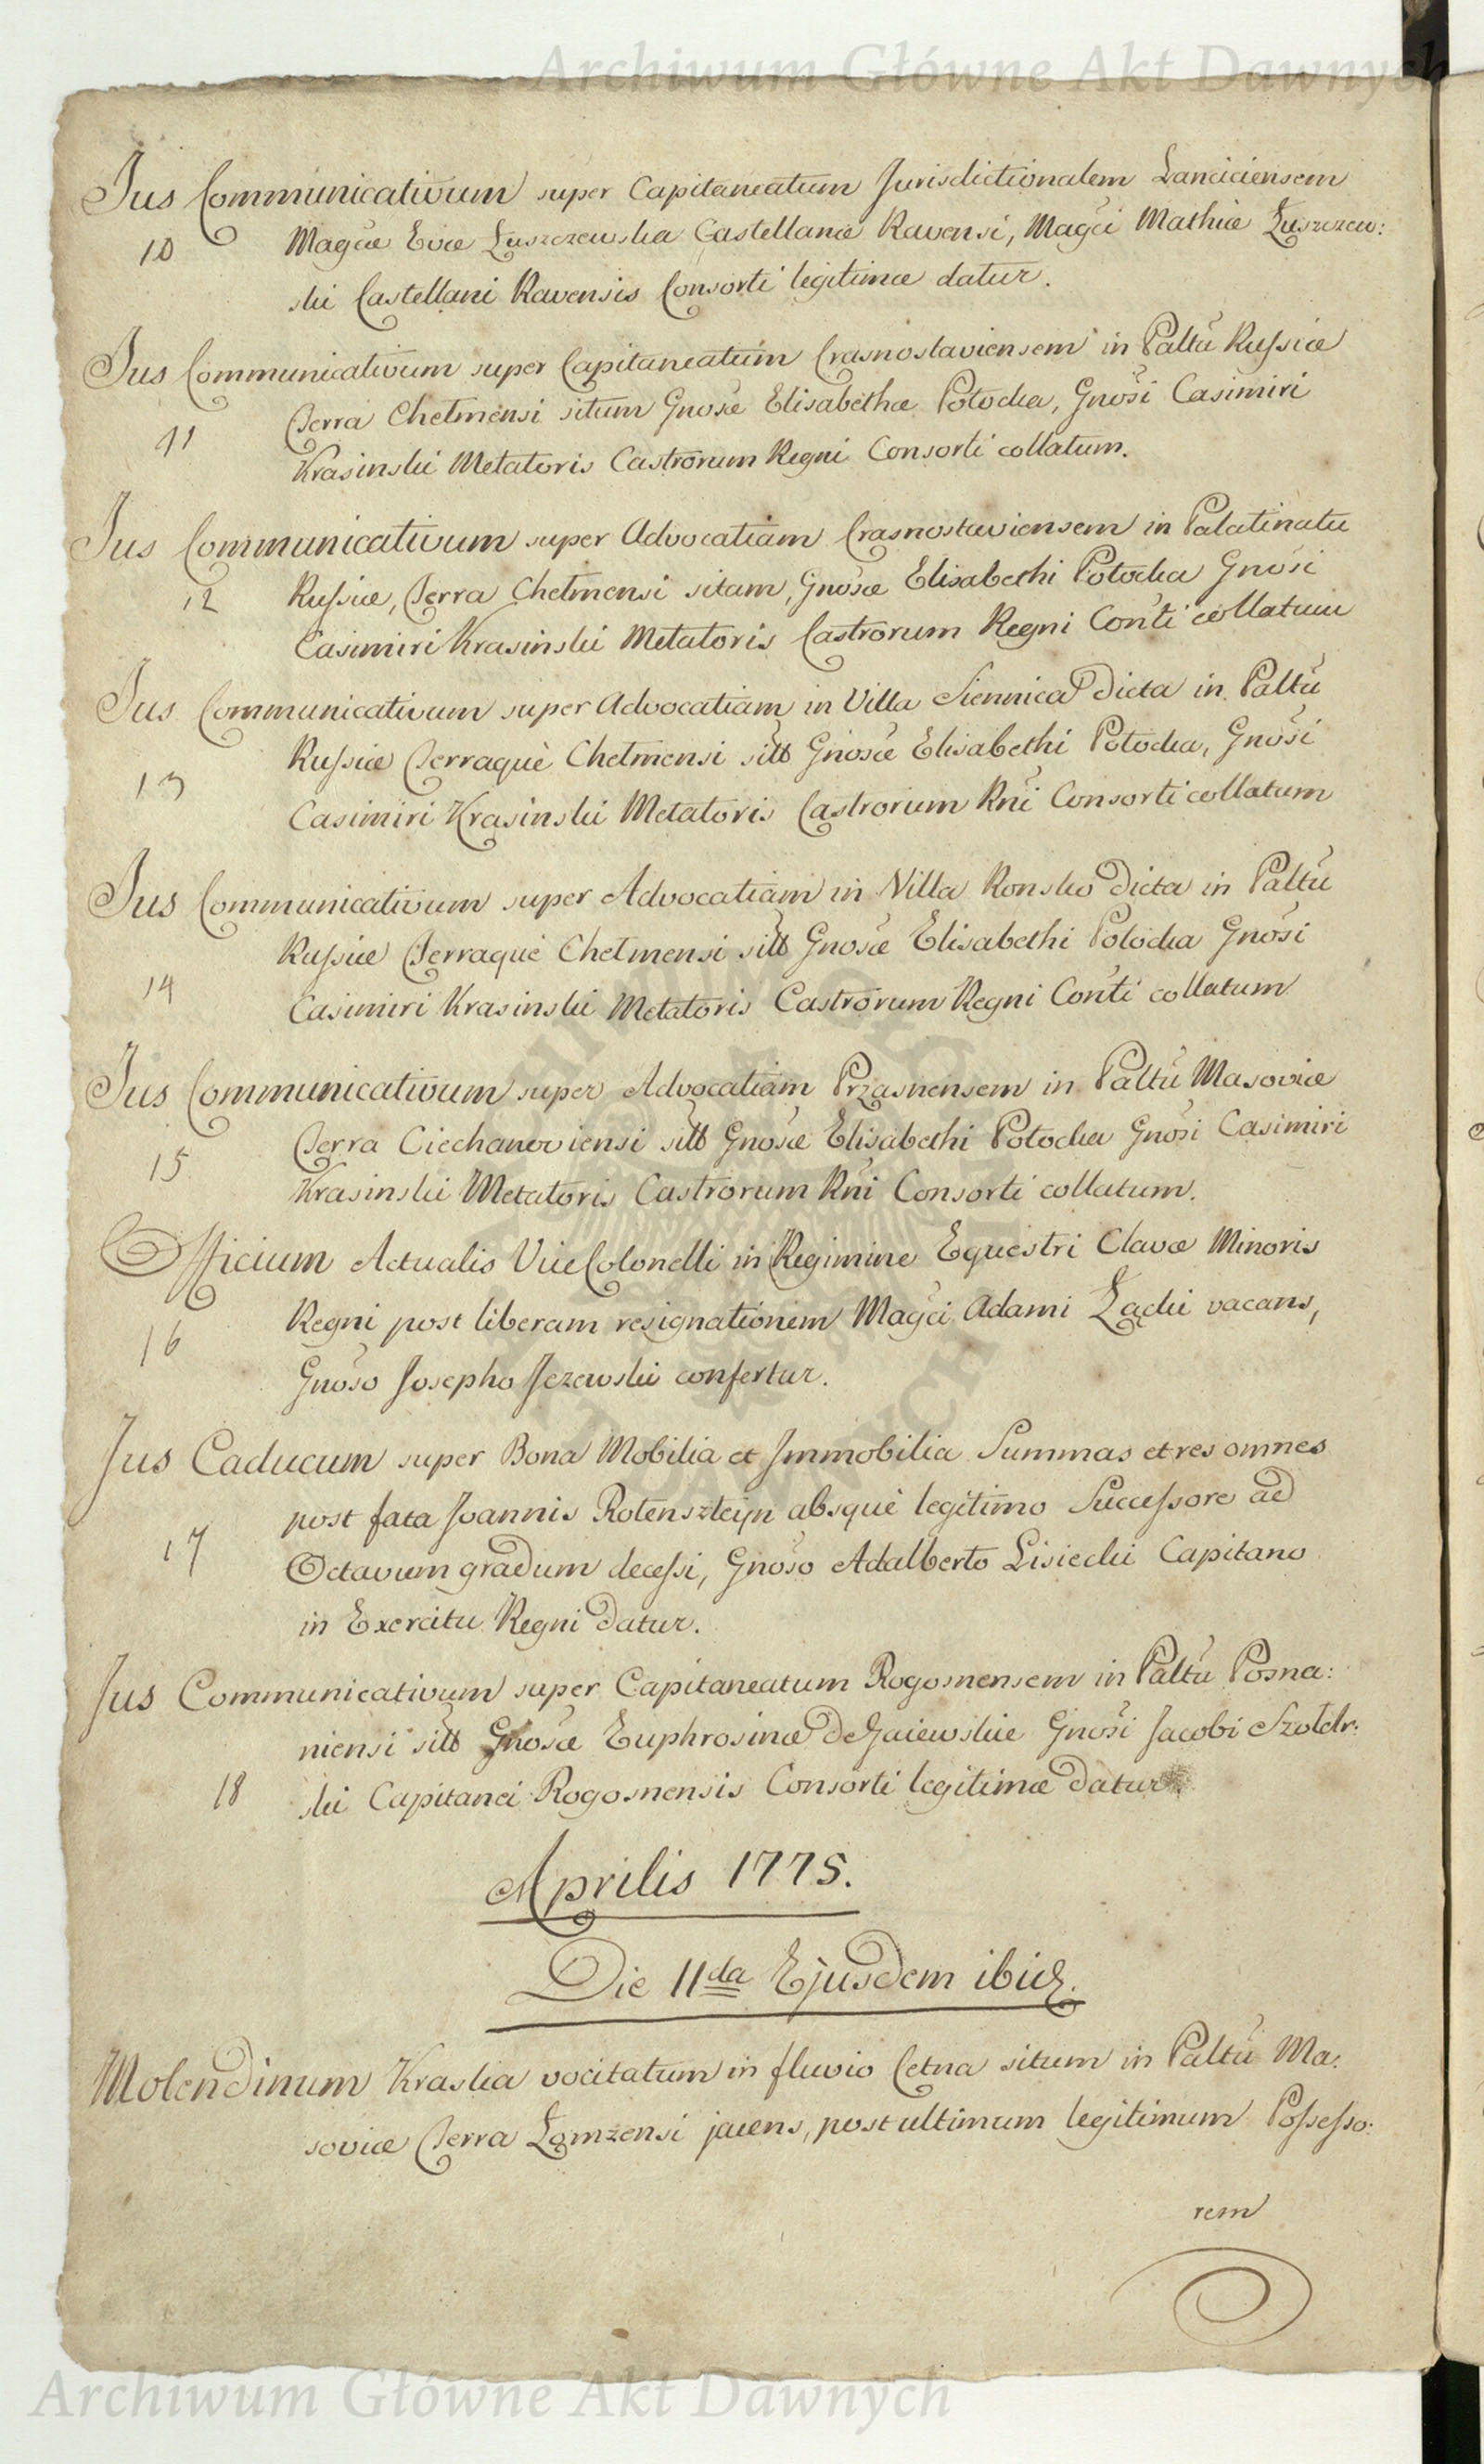 Archiwum Główne Akt Dawnych
Jus Communicativum super Capitaneatum Jurisdictionalem Lanciciensem
10 Magcæ Evæ Łuszczewska Castellanæ Ravensi, Magci Mathiæ Łuszczew:
ski Castellani Ravensis Consorti legitimæ datur.
Jus Communicativum super Capitaneatum Crasnostaviensem in Paltu Russiæ
Terra Chelmensi situm Gnosæ Elisabethæ Potocka, Gnosi Casimiri
11 Krasinski Metatoris Castrorum Regni Consorti collatum.
Jus Communicativum super Advocatiam Crasnostaviensem in Palatinatu
12 Russiæ, Terra Chelmensi sitam, Gnosæ Elisabethi Potocka Gnosi
Casimiri Krasinski Metatoris Castrorum Regni Conti collatum
Jus Communicativum super Advocatiam in Villa Siennica dicta in Paltu
Russiæ Terraque Chelmensi sitt Gnosæ Elisabethi Potocka, Gnosi
13 Casimiri Krasinski Metatoris Castrorum Rni Consorti collatum
Jus Communicativum super Advocatiam in Villa Ronsko dicta in Paltu
Russiæ Terraque Chelmensi sitt Gnosæ Elisabethi Potocka Gnosi
14 Casimiri Krasinski Metatoris Castrorum Regni Conti collatum
Jus Communicativum super Advocatiam Przasnensem in Paltu Masoviæ
Terra Ciechanoviensi sitt Gnosæ Elisabethi Potocka Gnosi Casimiri
15 Krasinski Metatoris Castrorum Rni Consorti collatum.
Officium Actualis ViceColonelli in Regimine Equestri Clavæ Minoris
Regni post liberam resignationem Magci Adami Łącki vacans,
16 Gnoso Josepho Jezewski confertur.
Jus Caducum super Bona Mobilia et Immobilia Summas et res omnes
post fata Joannis Rotensztejn absque legitimo Successore ad
17 Octavum gradum decessi, Gnoso Adalberto Lisiecki Capitano
in Exercitu Regni datur.
Jus Communicativum super Capitaneatum Rogosnensem in Paltu Posna:
niensi sitt Gnosæ Euphrosinæ de Gaiewskie Gnosi Jacobi Szołdr:
18 ski Capitanei Rogosnensis Consorti legitimæ datur
Aprilis 1775.
Die 11da Ejusdem ibid.
Molendinum Kraska vocitatum in fluvio Cetna situm in Paltu Ma:
soviæ Terra Łomzensi jacens, post ultimum legitimum Possesso:
rem
Archiwum Główne Akt Dawnych